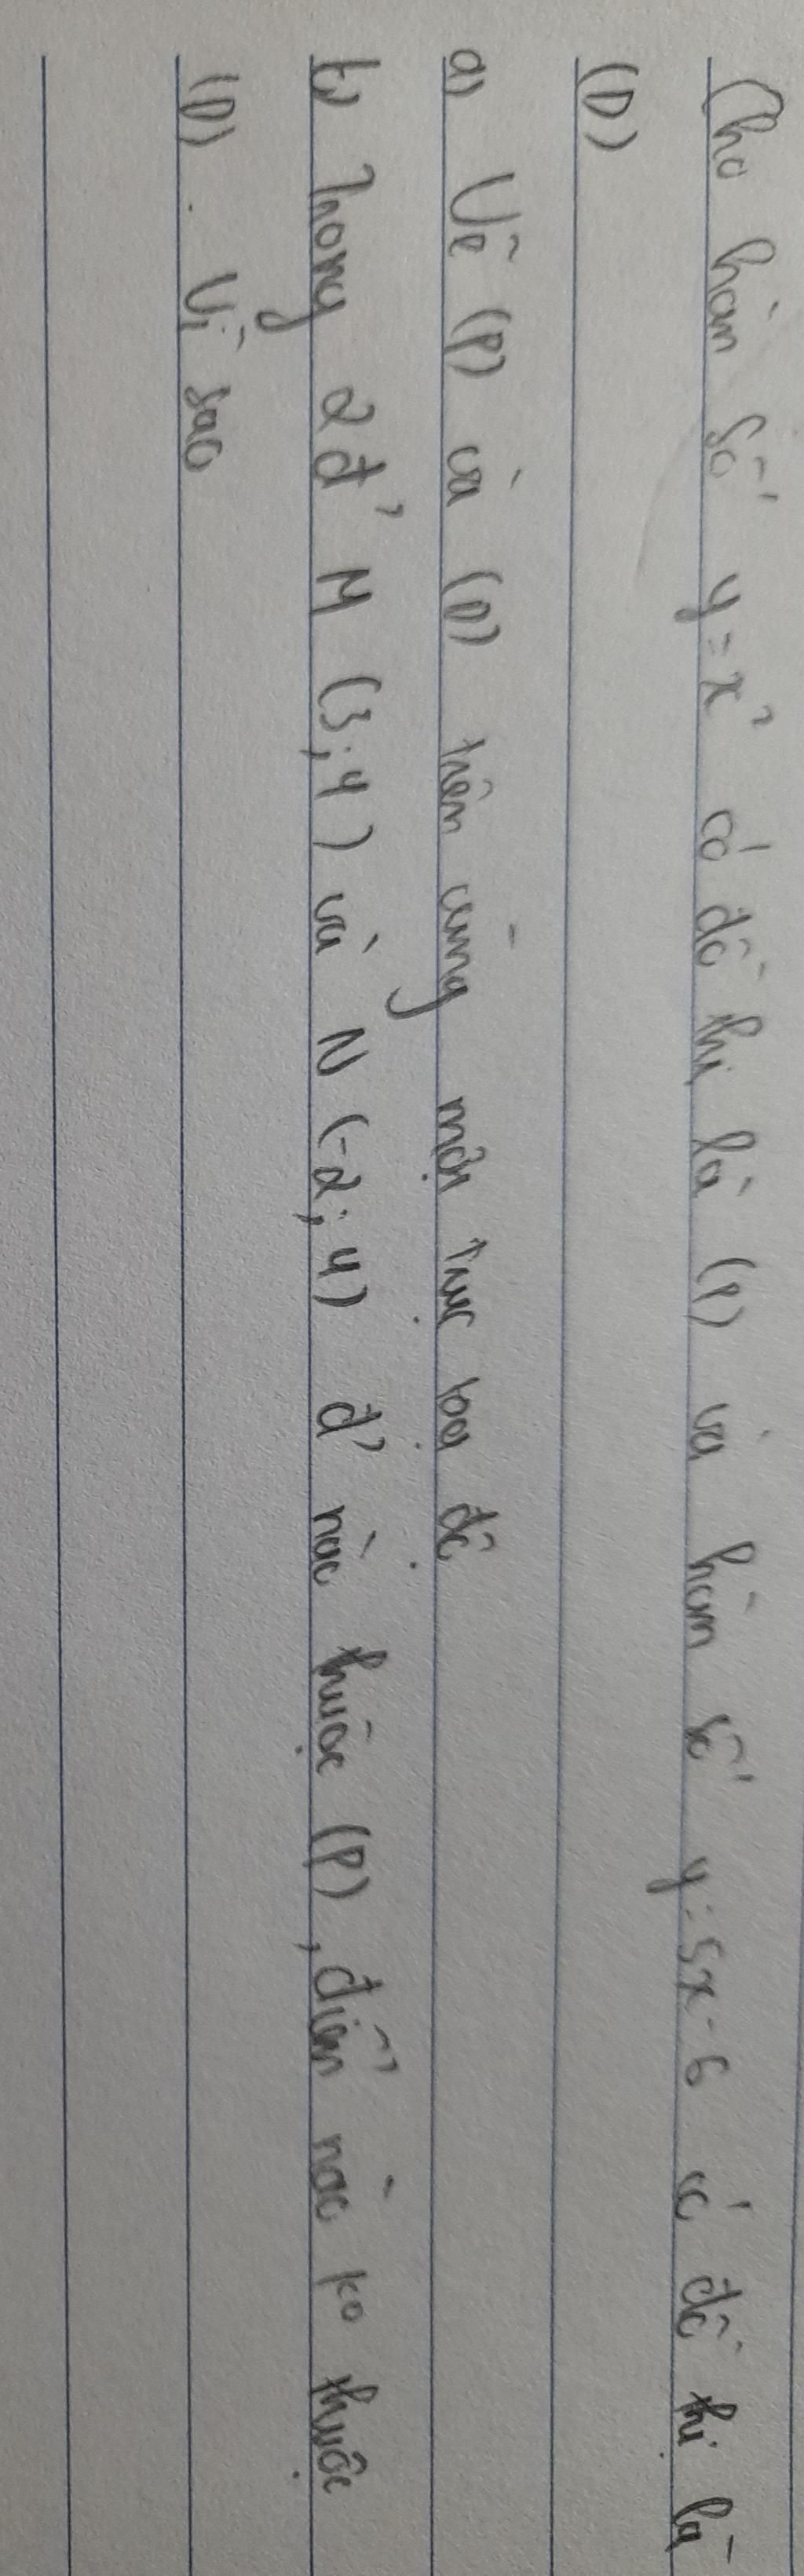 Cho hàm số y = x² có đồ thị là (P) và hàm số y = 5x - 6 có đồ thị là
(D)
a) Vẽ (P) và (D) trên cùng một trục toạ độ
b) Trong 2 đ' M (3; 4) và N (-2; 4) đ' nào thuộc (P), điểm nào ko thuộc
(D). Vì sao